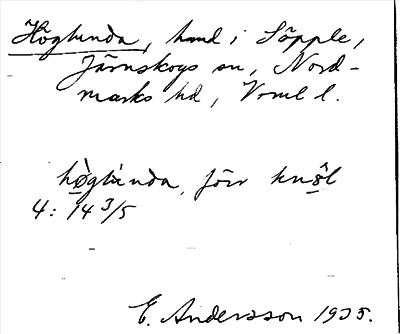 Höglunda, hmd i Söpple,
Järnskogs sn, Nord-
marks hd, Vrml l.
hø̀glùnda, förr knôl
4: 14 3/5
E. Andersson 1935.